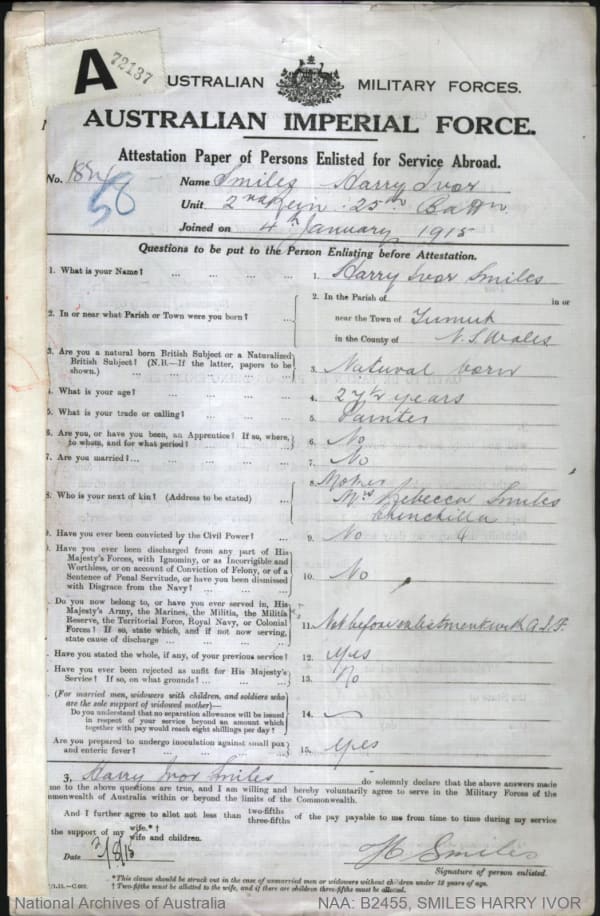 A 72137
AUSTRALIAN MILITARY FORCES.
AUSTRALIAN IMPERIAL FORCE.
Attestation Paper of Persons Enlisted for Service Abroad.
No. 58
Name Smiles Harry Ivor
Unit 2nd Rein. 25th Battn
Joined on 4th January 1915
Questions to be put to the Person Enlisting before Attestation.
1. What is your Name? ... ... ... 1. Harry Ivor Smiles
2. In or near what Parish or Town were you born? ... 2. In the Parish of in or
near the Town of Tumut
in the County of N.S.Wales
3. Are you a natural born British Subject or a Naturalized
British Subject? (N.B.—If the latter, papers to be
shown.) ... ... ... 3. Natural born
4. What is your age? ... ... ... 4. years
5. What is your trade or calling? ... ... ... 5. Painter
6. Are you, or have you been, an Apprentice? If so, where,
to whom, and for what period? ... ... 6. No
7. Are you married?... ... ... ... 7. No
8. Who is your next of kin? (Address to be stated) ... 8. Mother
Mrs Rebecca Smiles
Chinchilla
9. Have you ever been convicted by the Civil Power? ... 9. No
Have you ever been discharged from any part of His
Majesty's Forces, with Ignominy, or as Incorrigible and
Worthless, or on account of Conviction of Felony, or of a
Sentence of Penal Servitude, or have you been dismissed
with Disgrace from the Navy? ... ... 10. No
Do you now belong to, or have you ever served in, His
Majesty's Army, the Marines, the Militia, the Militia
Reserve, the Territorial Force, Royal Navy, or Colonial
Forces? If so, state which, and if not now serving,
state cause of discharge ... ... ... 11. Not before enlistment with A.I.F
Have you stated the whole, if any, of your previous service? 12. Yes
Have you ever been rejected as unfit for His Majesty's
Service? If so, on what grounds? ... ... 13. No
(For married men, widowers with children, and soldiers who
are the sole support of widowed mother)—
Do you understand that no separation allowance will be issued
in respect of your service beyond an amount which
together with pay would reach eight shillings per day? 14.
Are you prepared to undergo inoculation against small pox
and enteric fever? ... ... ... 15. Yes
I, Harry Ivor Smiles do solemnly declare that the above answers made
me to the above questions are true, and I am willing and hereby voluntarily agree to serve in the Military Forces of the
Commonwealth of Australia within or beyond the limits of the Commonwealth.
And I further agree to allot not less than two-fifths three-fifths of the pay payable to me from time to time during my service
the support of my wife.*† wife and children.
Date 2/8/15
H Smiles
Signature of person enlisted.
*This clause should be struck out in the case of unmarried men or widowers without children under 18 years of age.
† Two-fifths must be allotted to the wife, and if there are children three-fifths must be allotted.
National Archives of Australia NAA: B2455, SMILES HARRY IVOR